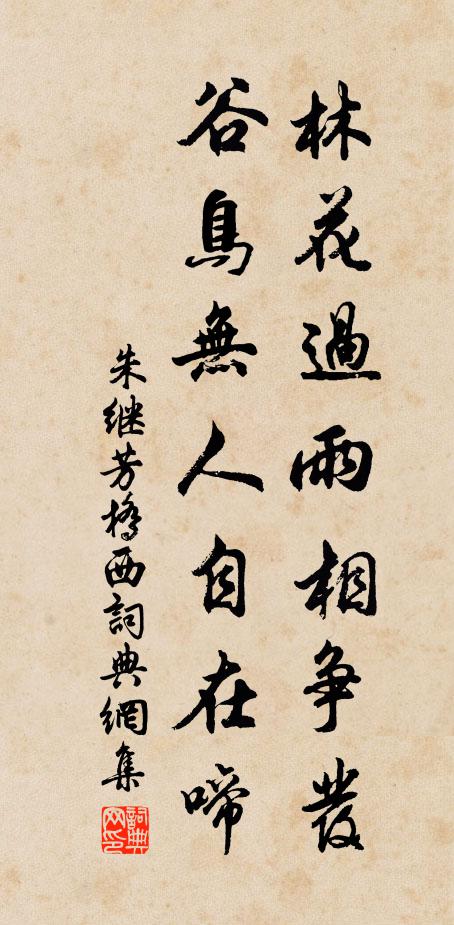 林花過雨相争發
谷鳥無人自在啼
朱继芳橋西詞典網集
詞典网印